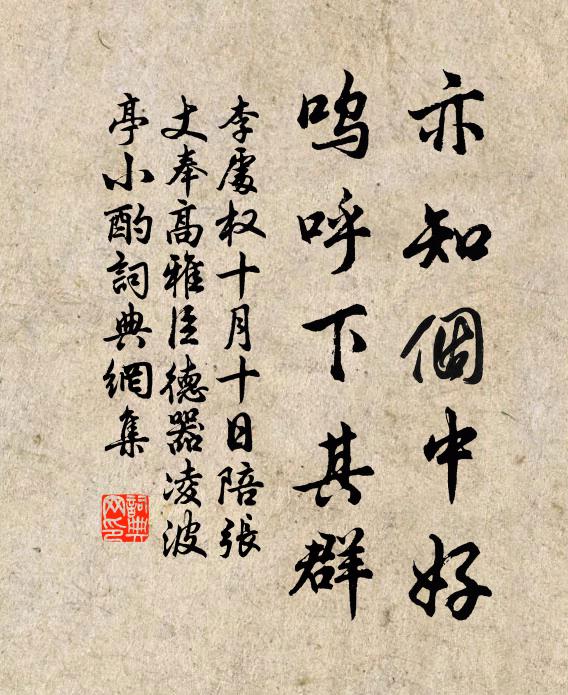 亦知個中好
嗚呼下其群
李處权十月十日陪張
丈奉高雅臣德器凌波
亭小酌詞典網集
詞典网印